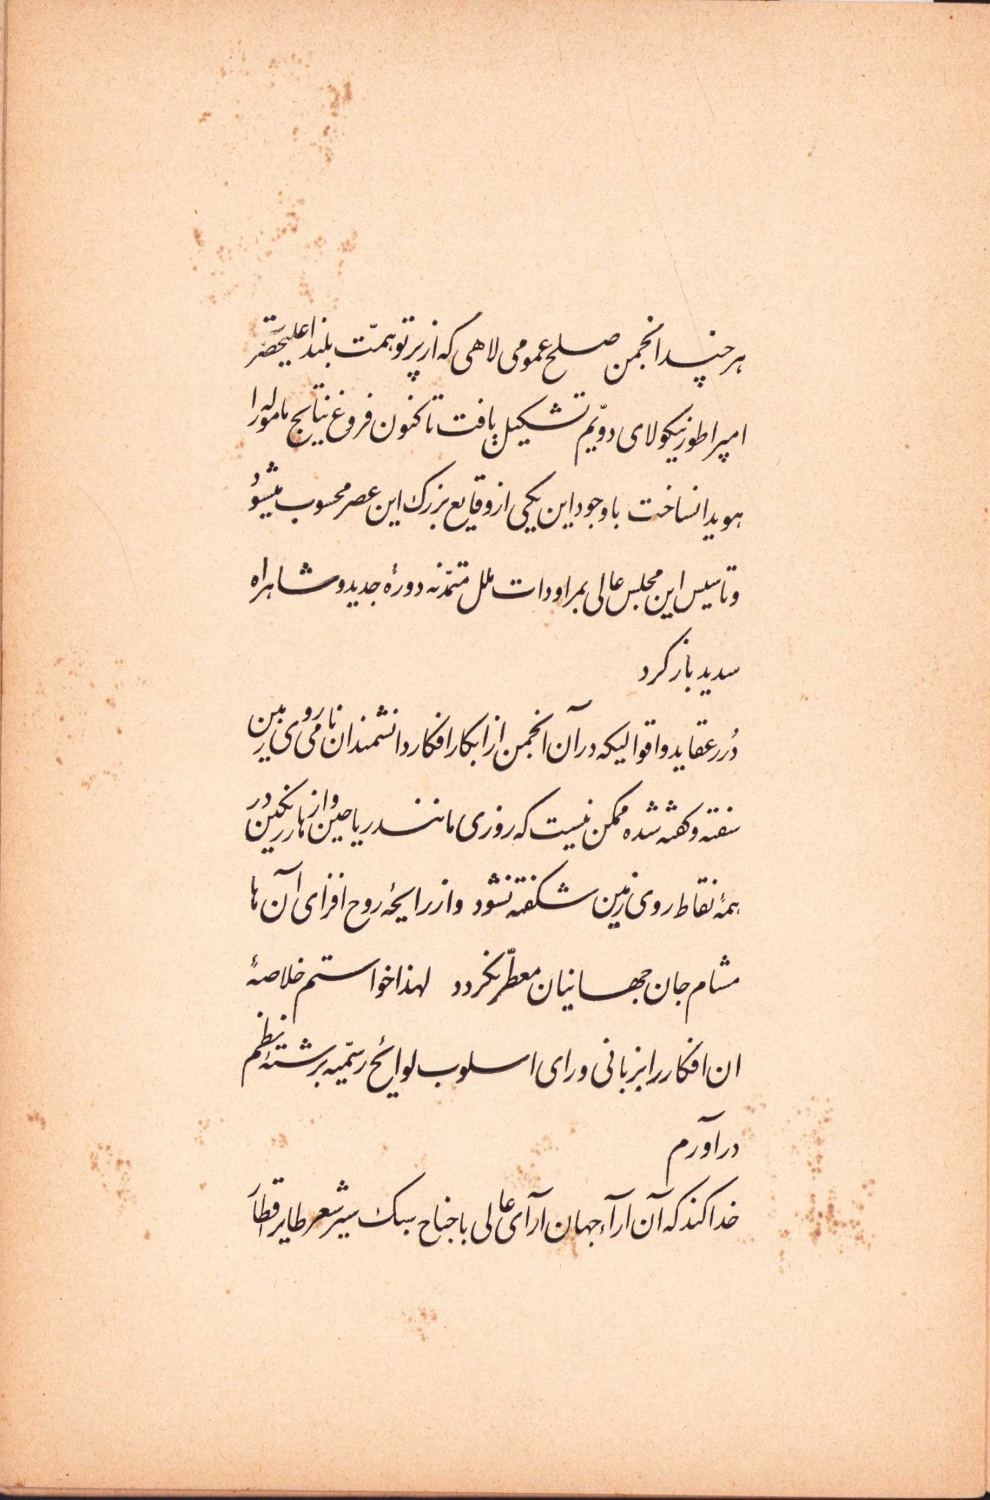 هر چند انجمن صلح عمومی لاهی که از پرتو همّت بلند اعلیحضرت
امپراطور نیکولای دویّم تشکیل یافت تاکنون فروغ نتایج مامولهٔ را
هویدا نساخت با وجود این یکی از وقایع بزرک این عصر محسوب میشود
و تاسیس این مجلس عالی بمراودات ملل متمدّنه دورهٔ جدید و شاهراه
سدید باز کرد
دُرر عقاید و اقوالیکه در آن انجمن از ابکار افکار دانشمندان نامی روی زمین
سفته و کفته شده ممکن نیست که روزی مانند ریاحین و ازهار رنکین در
همهٔ نقاط روی زمین شکفته نشود و از رایحهٔ روح افزای آن ها
مشام جان جهانیان معطّر نکردد لهذا خواستم خلاصهٔ
ان افکار را بزبانی ورای اسلوب لوایٔح رسمّیه برشتهٔ نظم
در آورم
خدا کند که آن آراء جهان آرای عالی با جناح سبک سیر شعر طایر اقطار